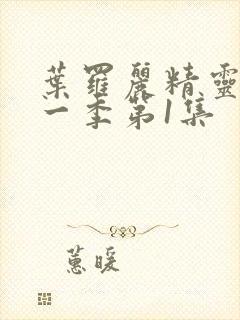 葉羅麗精靈
一季第1集
蕙暖